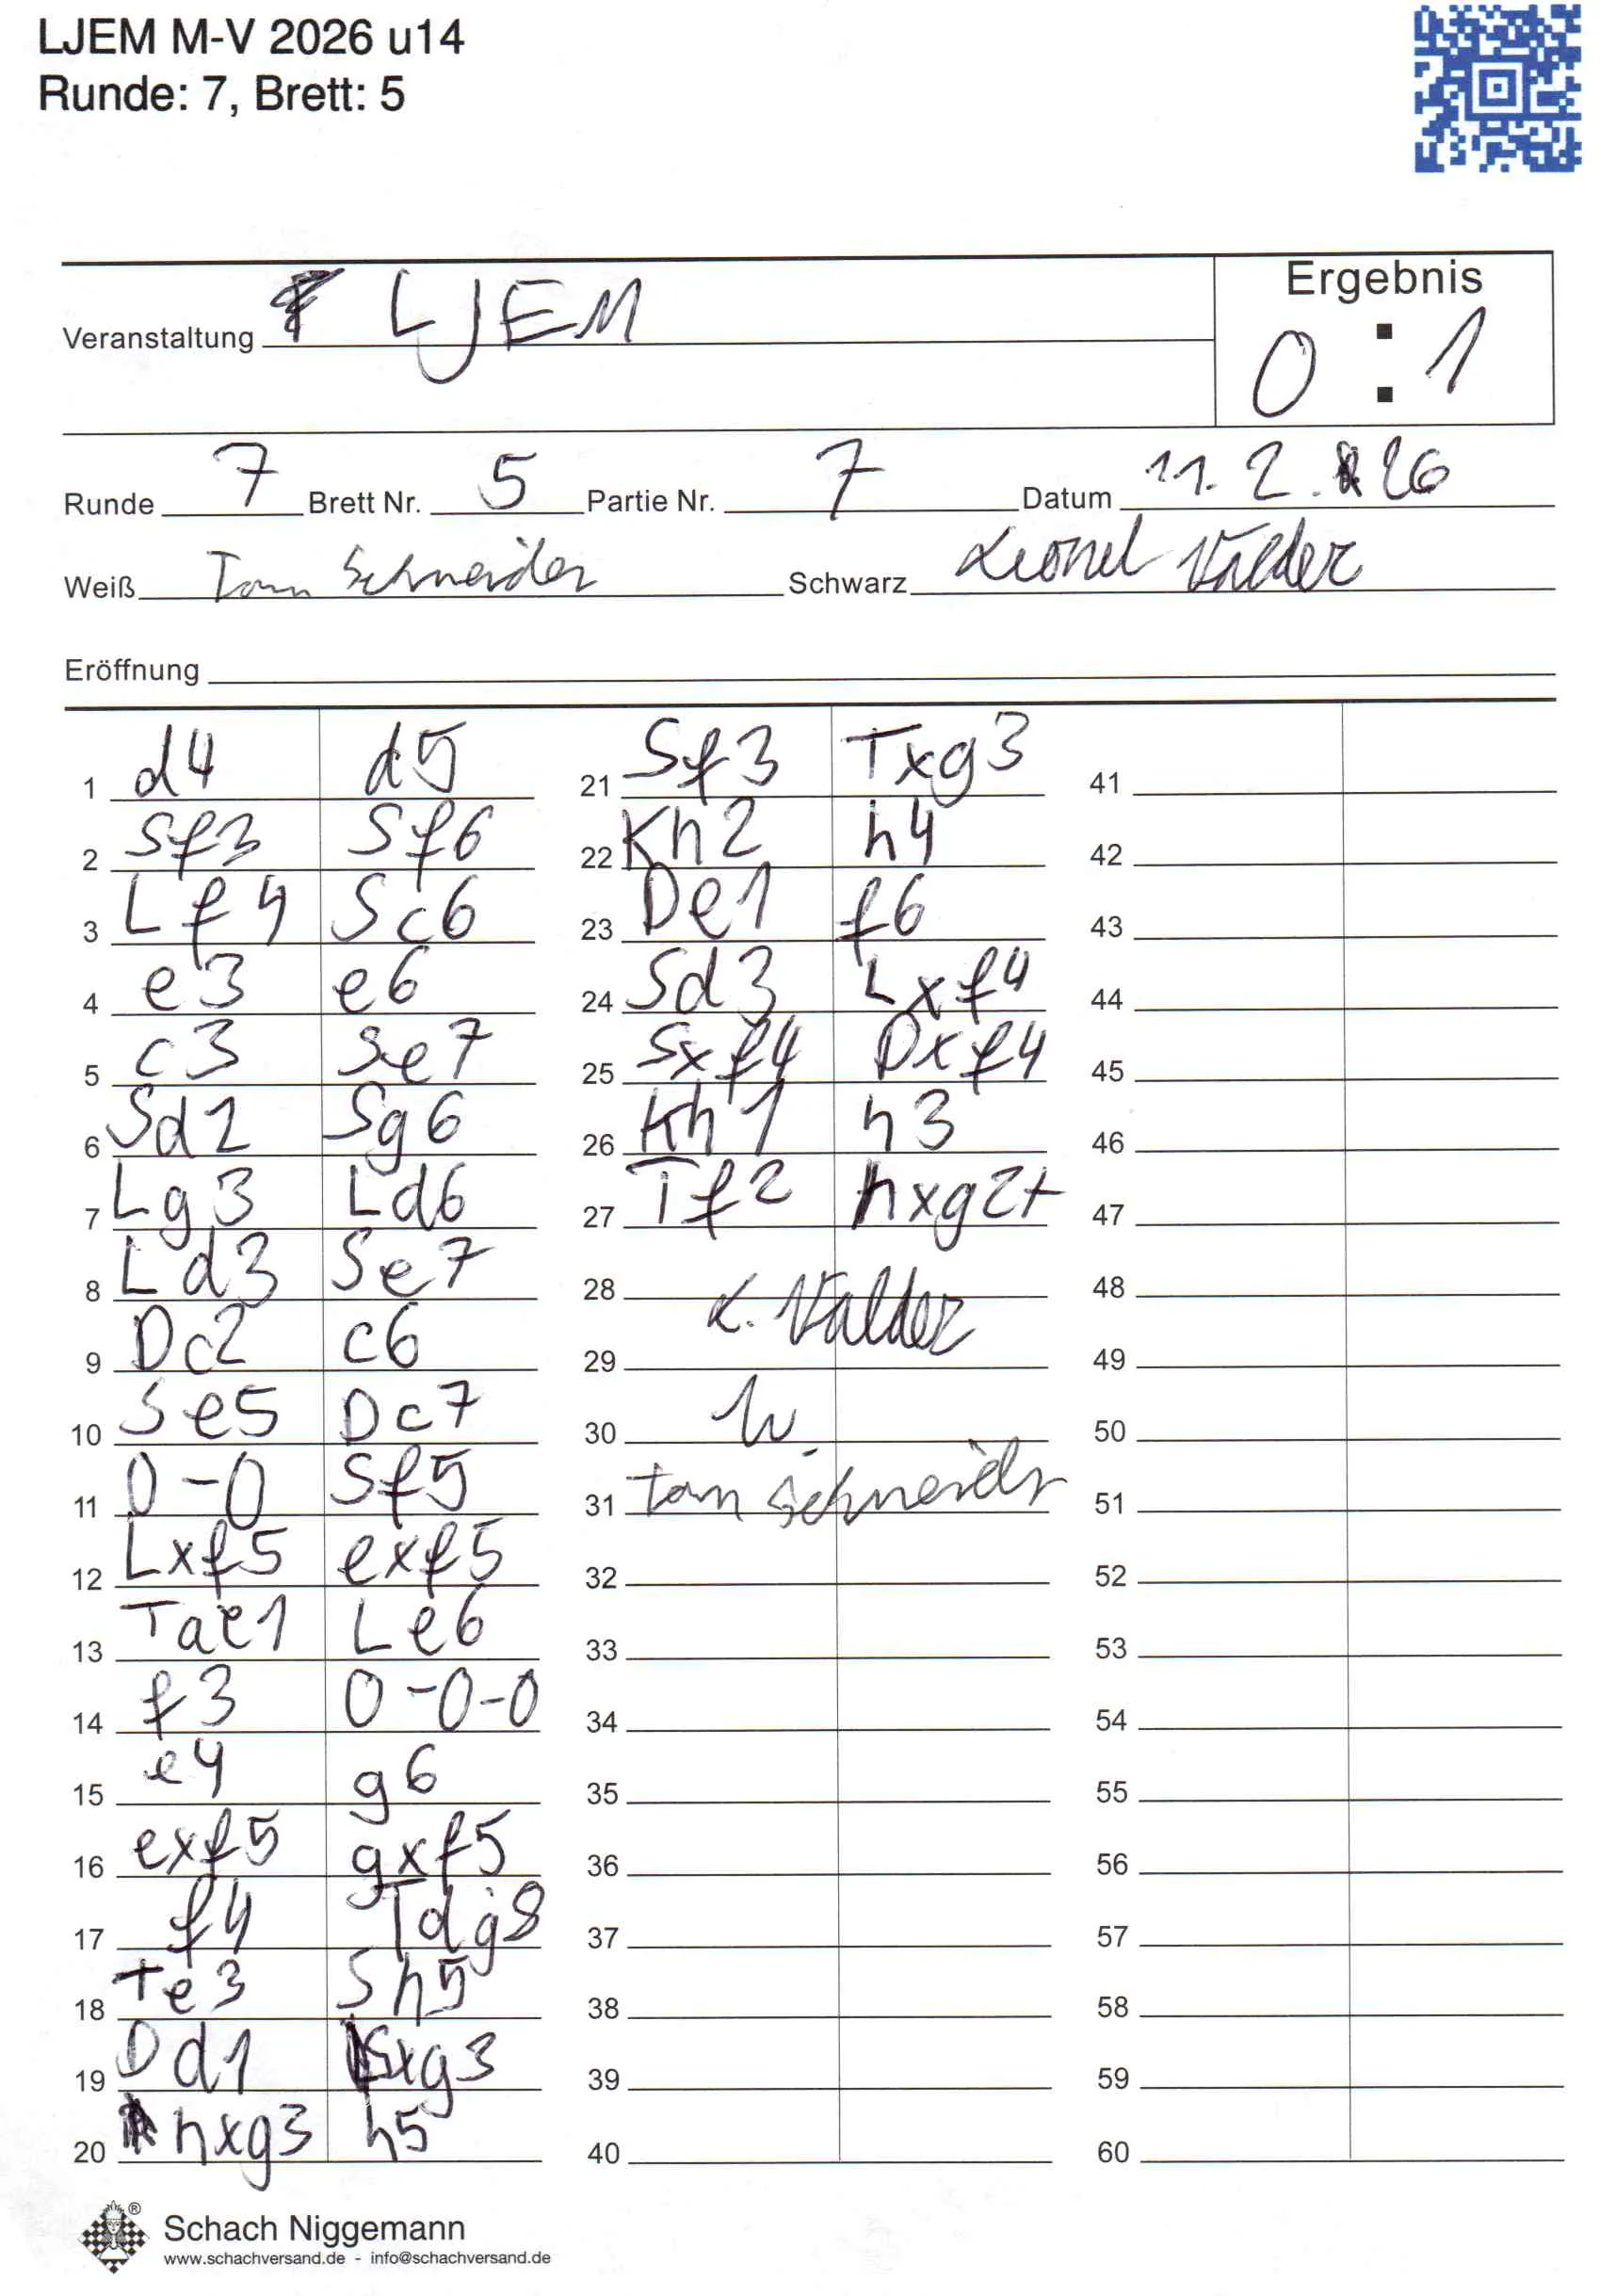 LJEM M-V 2026 u14
Runde: 7, Brett: 5
Veranstaltung LJEM
Ergebnis
0 : 1
Runde 7 Brett Nr. 5 Partie Nr. 7 Datum 11. 2. 26
Weiß Tom Schneider Schwarz Leonel Valder
Eröffnung
1 d4 d5
2 Sf3 Sf6
3 Lf4 Sc6
4 e3 e6
5 c3 Se7
6 Sd2 Sg6
7 Lg3 Ld6
8 Ld3 Se7
9 Dc2 c6
10 Se5 Dc7
11 0-0 Sf5
12 Lxf5 exf5
13 Tae1 Le6
14 f3 0-0-0
15 e4 g6
16 exf5 gxf5
17 f4 Tdg8
18 Te3 Sh5
19 Dd1 Sxg3
20 hxg3 h5
21 Sf3 Txg3
22 Kh2 h4
23 De1 f6
24 Sd3 Lxf4
25 Sxf4 Dxf4
26 Kh1 h3
27 Tf2 hxg2+
28 L. Valder
29
30
31 Tom Schneider
32
33
34
35
36
37
38
39
40
41
42
43
44
45
46
47
48
49
50
51
52
53
54
55
56
57
58
59
60
Schach Niggemann
www.schachversand.de - info@schachversand.de